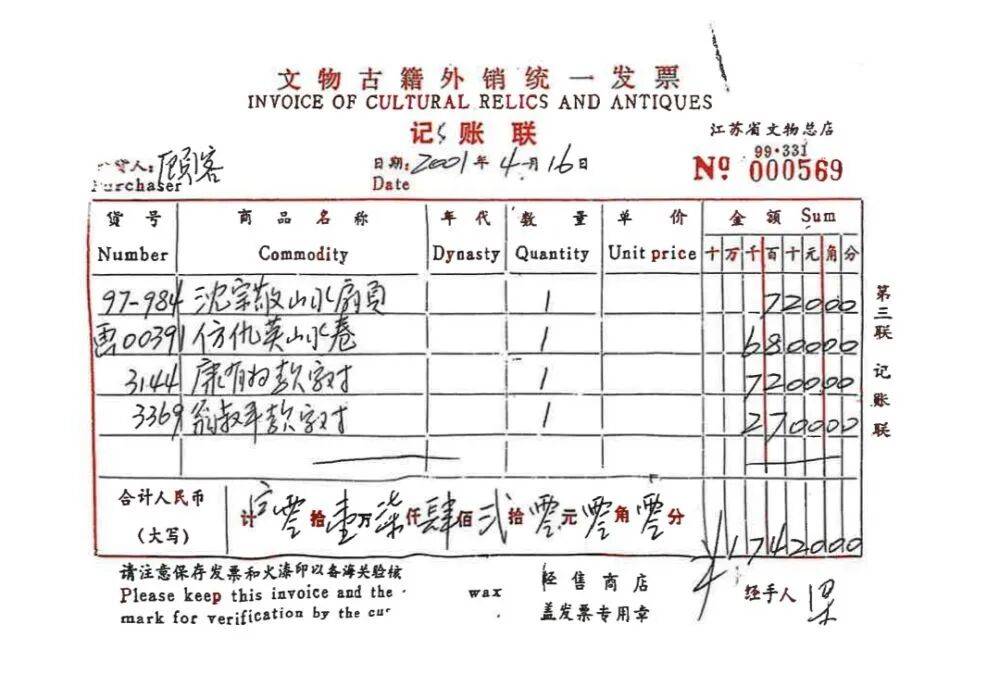 文物古籍外销统一发票
INVOICE OF CULTURAL RELICS AND ANTIQUES
记账联
江苏省文物总店
货人: 顾客
Purchaser
日期: 2001年4月16日
Date
99·331
Nº 000569
货号 商品名称 年代 数量 单价 金额 Sum
Number Commodity Dynasty Quantity Unit price 十万千百十元角分
97-984 沈宗敬山水扇頁 1 72000
画00391 仿仇英山水卷 1 680000
3144 康有为款字对 1 720000
3369 翁叔平款字对 1 270000
合计人民币
(大写)
计 零拾壹万柒仟肆佰弍拾零元零角零分
¥1742000
请注意保存发票和火漆印以备海关验核
Please keep this invoice and the wax
mark for verification by the cu
经售商店
盖发票专用章
经手人
第三联 记账联